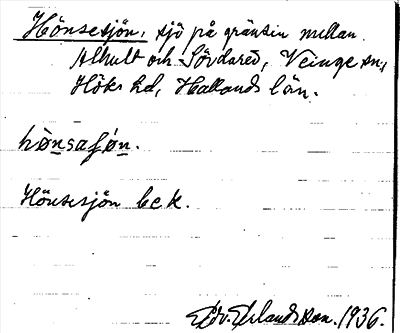 Hönsesjön, sjö på gränsen mellan
Alhult och Sördared, Veinge sn,
Höks hd, Hallands län.
hònsaʃøn.
Hönsesjön bek.
Edv. Erlandsson. 1936.